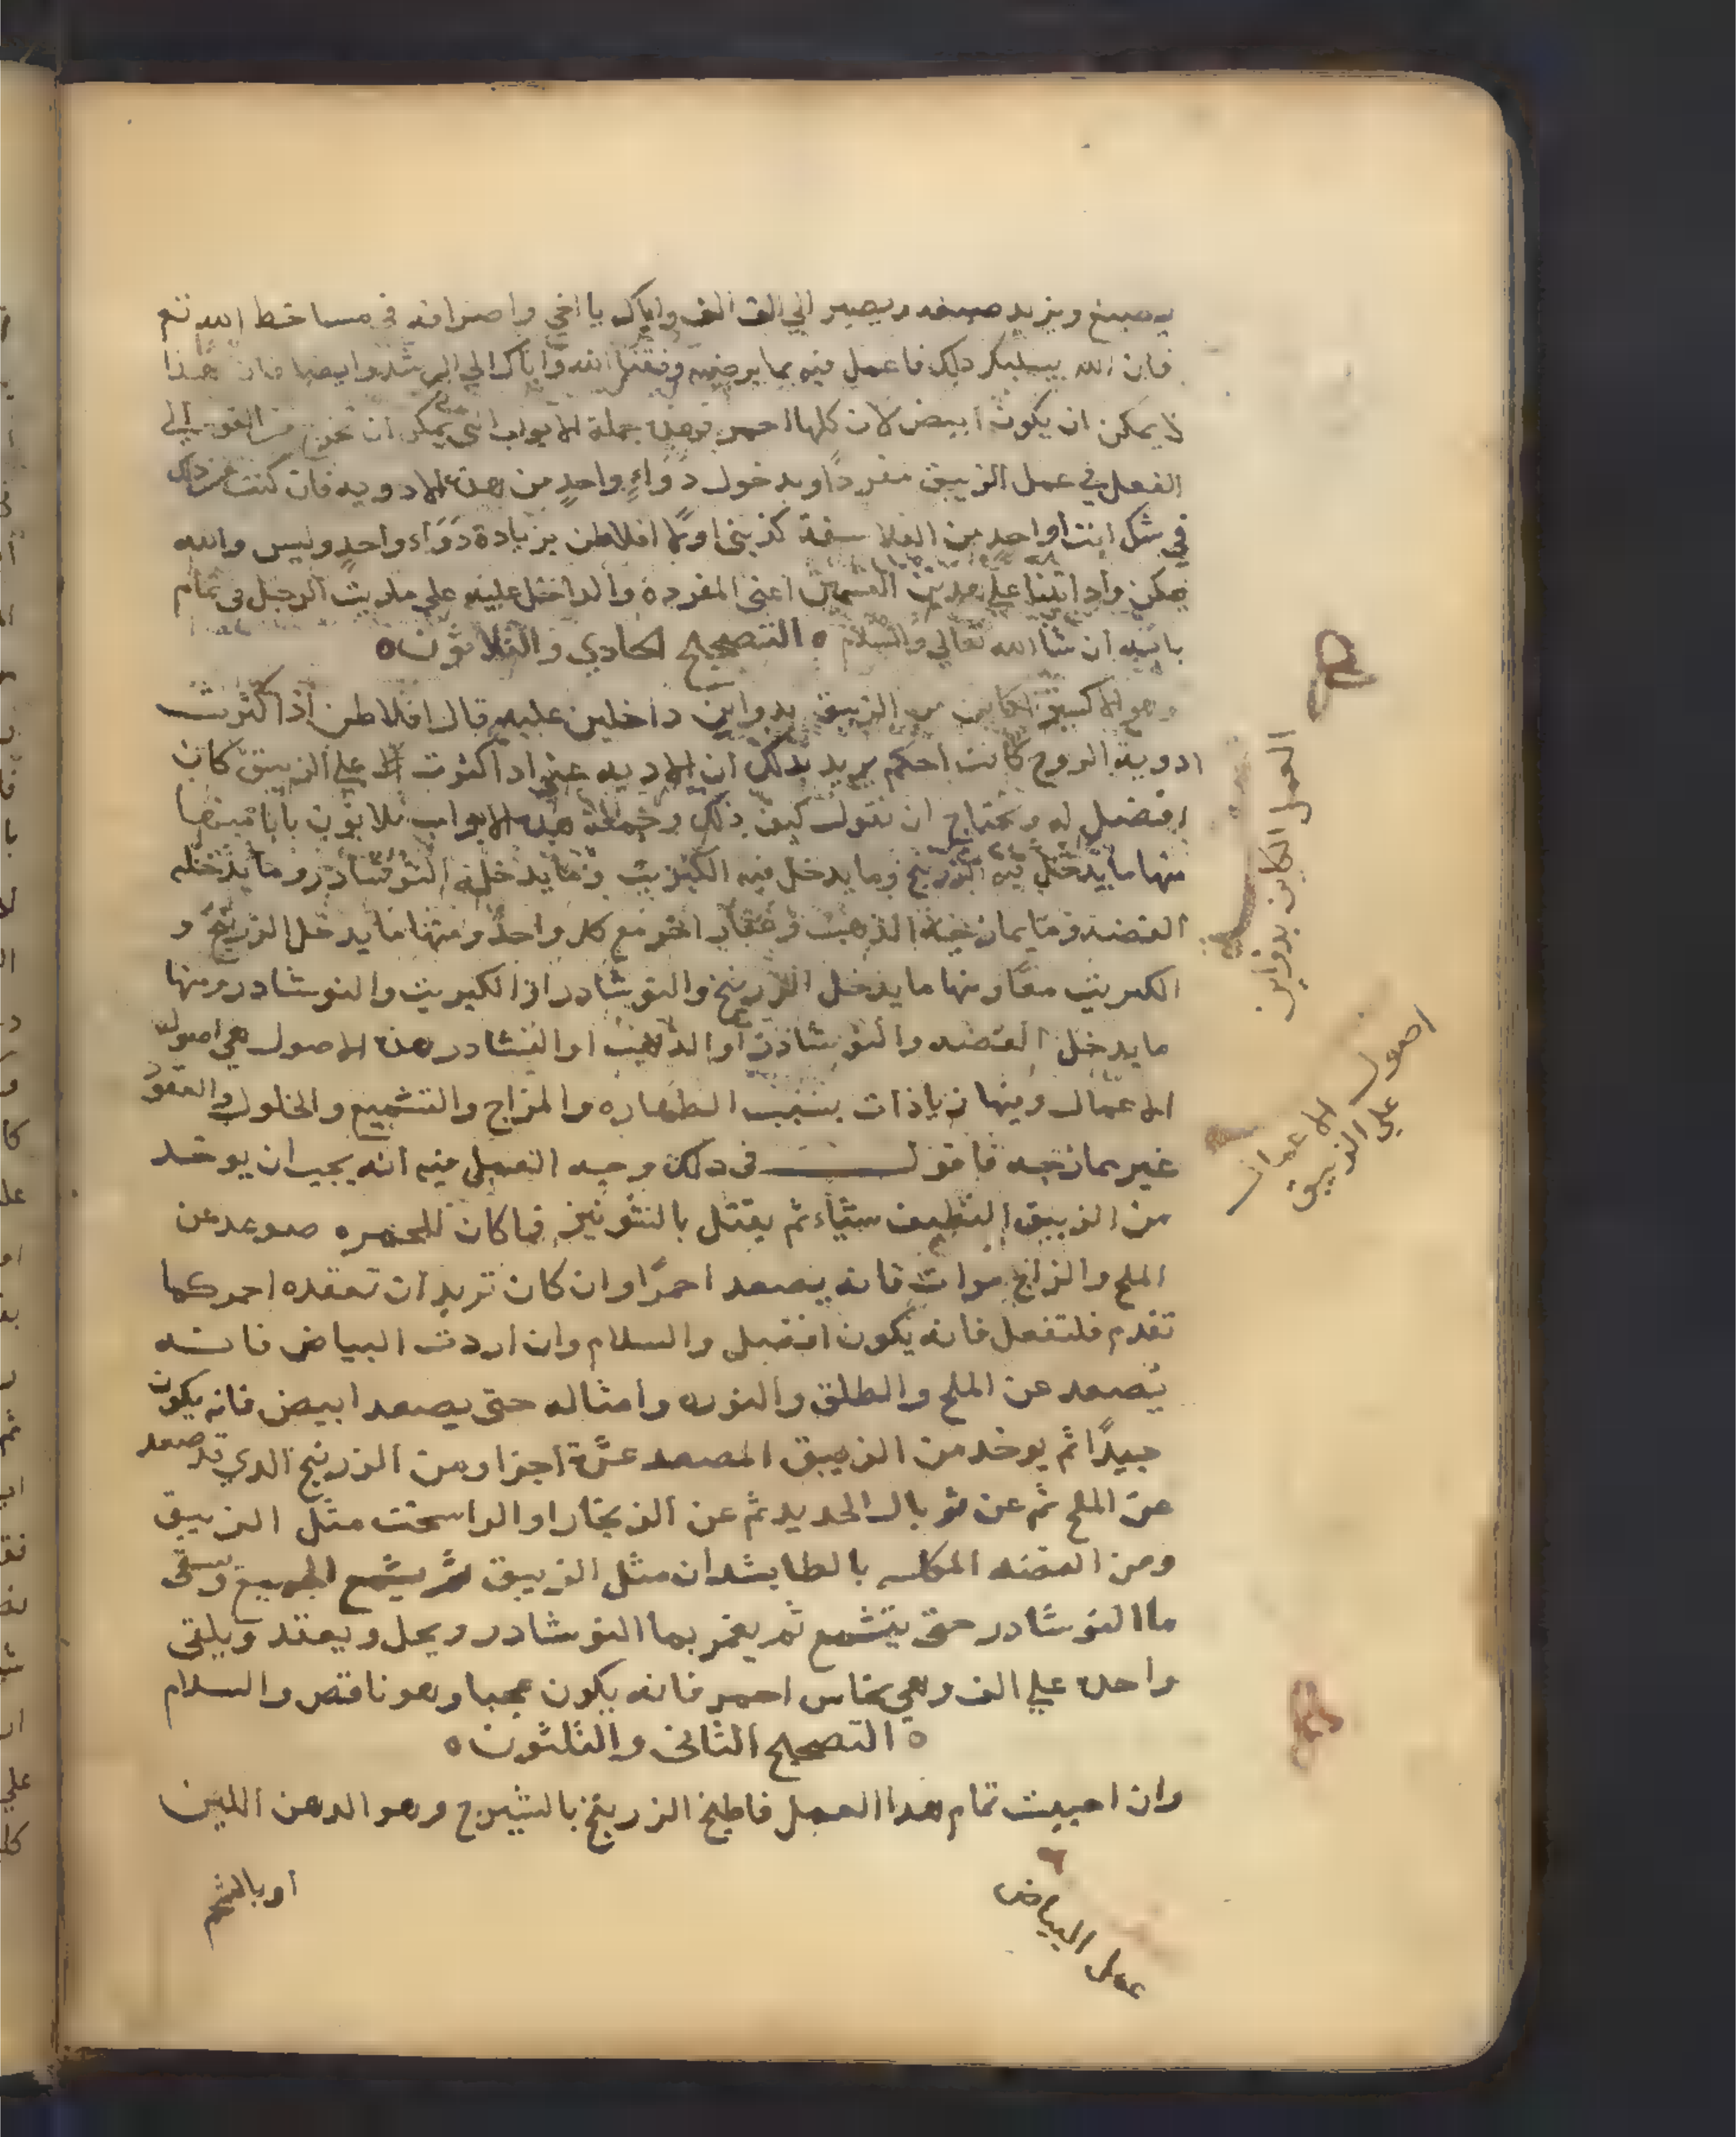 يصبغ ويزيد صبغه ويصير الي الف الف واياك يا اخي واصرافه في مساخط الله تع
فان الله يسلبكر ذلك فاعمل فيه بما يرضيه وفقنا الله واياك الي الرشد وايضا فان هذا
لا يمكن ان يكون ابيض لان كلها احمر فهذه جملة الابواب التي يمكن ان تخرج من القوة الي
الفعل في عمل الزيبق مفردا وبدخول دَوَاءٍ واحدٍ من هذه الادويه فان كنت من ذلك
في شك انت او احد من الفلاسفة كذبني اولا افلاطن بزيادة دَوَاء واحدٍ وليس والله
يمكن واذ اتينا علي هذين القسمين اعني المفردة والداخل عليه علي ما ريت الرجل في تمام
بابيه ان شا الله تعالي والسلام ه التصحيح الحادي والثلاثون ه
وهو الاكسير الكاين من الزيبق بدواين داخلين عليه قال افلاطن اذا كثرت
ادوية الروح كانت احكم يريد بذلك ان الادويه عنه اذا كثرت علي الزيبق كان
افضل له ويحتاج ان نقول كيف ذلك وجملة هذه الابواب ثلاثون بابا فبعضها
منها ما يدخل فيه الزرنيخ وما يدخل فيه الكبريت وما يدخله النوشادر وما يدخله
الفضه وما يمازجه الذهب وعقار اخر مع كل واحد ومنها ما يدخل الزرنيخ و
الكبريت معًا ومنها ما يدخل الزرنيخ والنوشادر او الكبريت والنوشادر ومنها
ما يدخل الفضه والنوشادر او الذهب او النشادر هذه الاصول هي اصول
الاعمال وبينها زيادات بسبب الطهاره والمزاج والتشميع والحلول والعقود
غير ممازجه فاقول في ذلك وجه العمل فيه انه يجب ان يوخد
من الزيبق النظيف ستّاء ثم يقتل بالشونيز فما كان للحمره صوعد عن
الملح والزاج مرات فانه يصعد احمرًا وان كان تريد ان تعقده احمر كما
تقدم فلتفعل فانه يكون افضل والسلام وان اردت البياض فانه
يصعد عن الملح والطلق والنوره وامثاله حتي يصعد ابيض فانه يكون
جيدًا ثم يوخد من الزيبق المصعد عشرة اجزا ومن الزرنيخ الدي قد صعد
عن الملح ثم عن توبال الحديد ثم عن الزنجار او الراسخت مثل الزيبق
ومن الفضه المكلسه بالطابشدان مثل الزيبق ثم يشمع الجميع ويسقى
ما النوشادر حتى يتشمع ثم يغمر بما النوشادر ويحل ويعقد ويلقى
واحده علي الف وهي نحاس احمر فانه يكون عجبا وهو ناقص والسلام
ه التصحيح الثاني والثلثون ه
وان احببت تمام هذا العمل فاطبخ الزرنيخ بالشيرج وهو الدهن اللين
او بالشحم
العمل الكاين بدواين
اصول الاعمال
علي الزيبق
عمل البياض